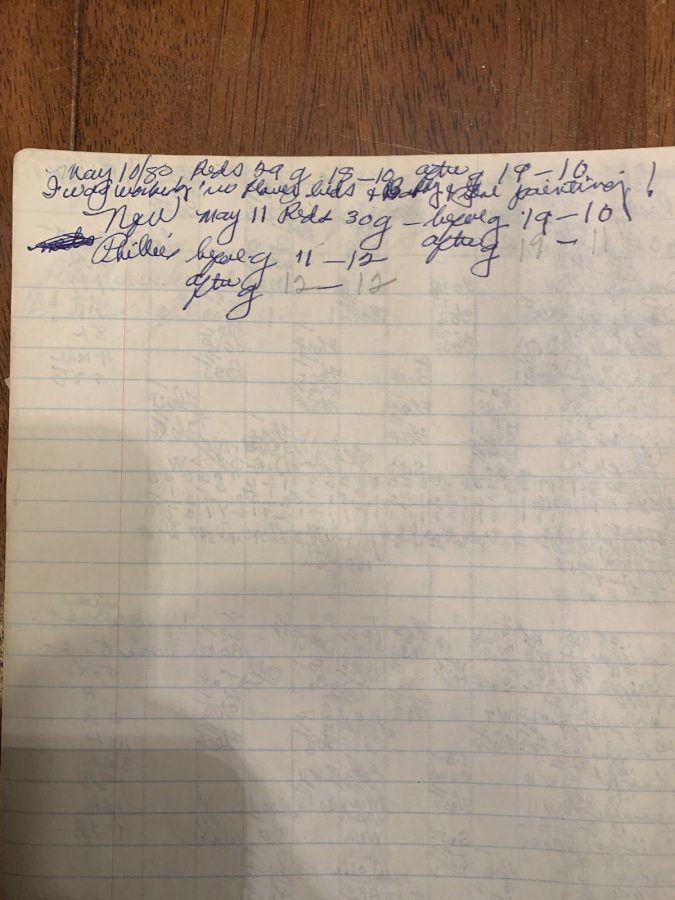 May 10/80 Reds 29 g 18-10 after g 19-10
I was working in flower beds & painting!
Now May 11 Reds 30g - before g 19-10
Phillies before g 11-12 after g 19-11
after g 12-12